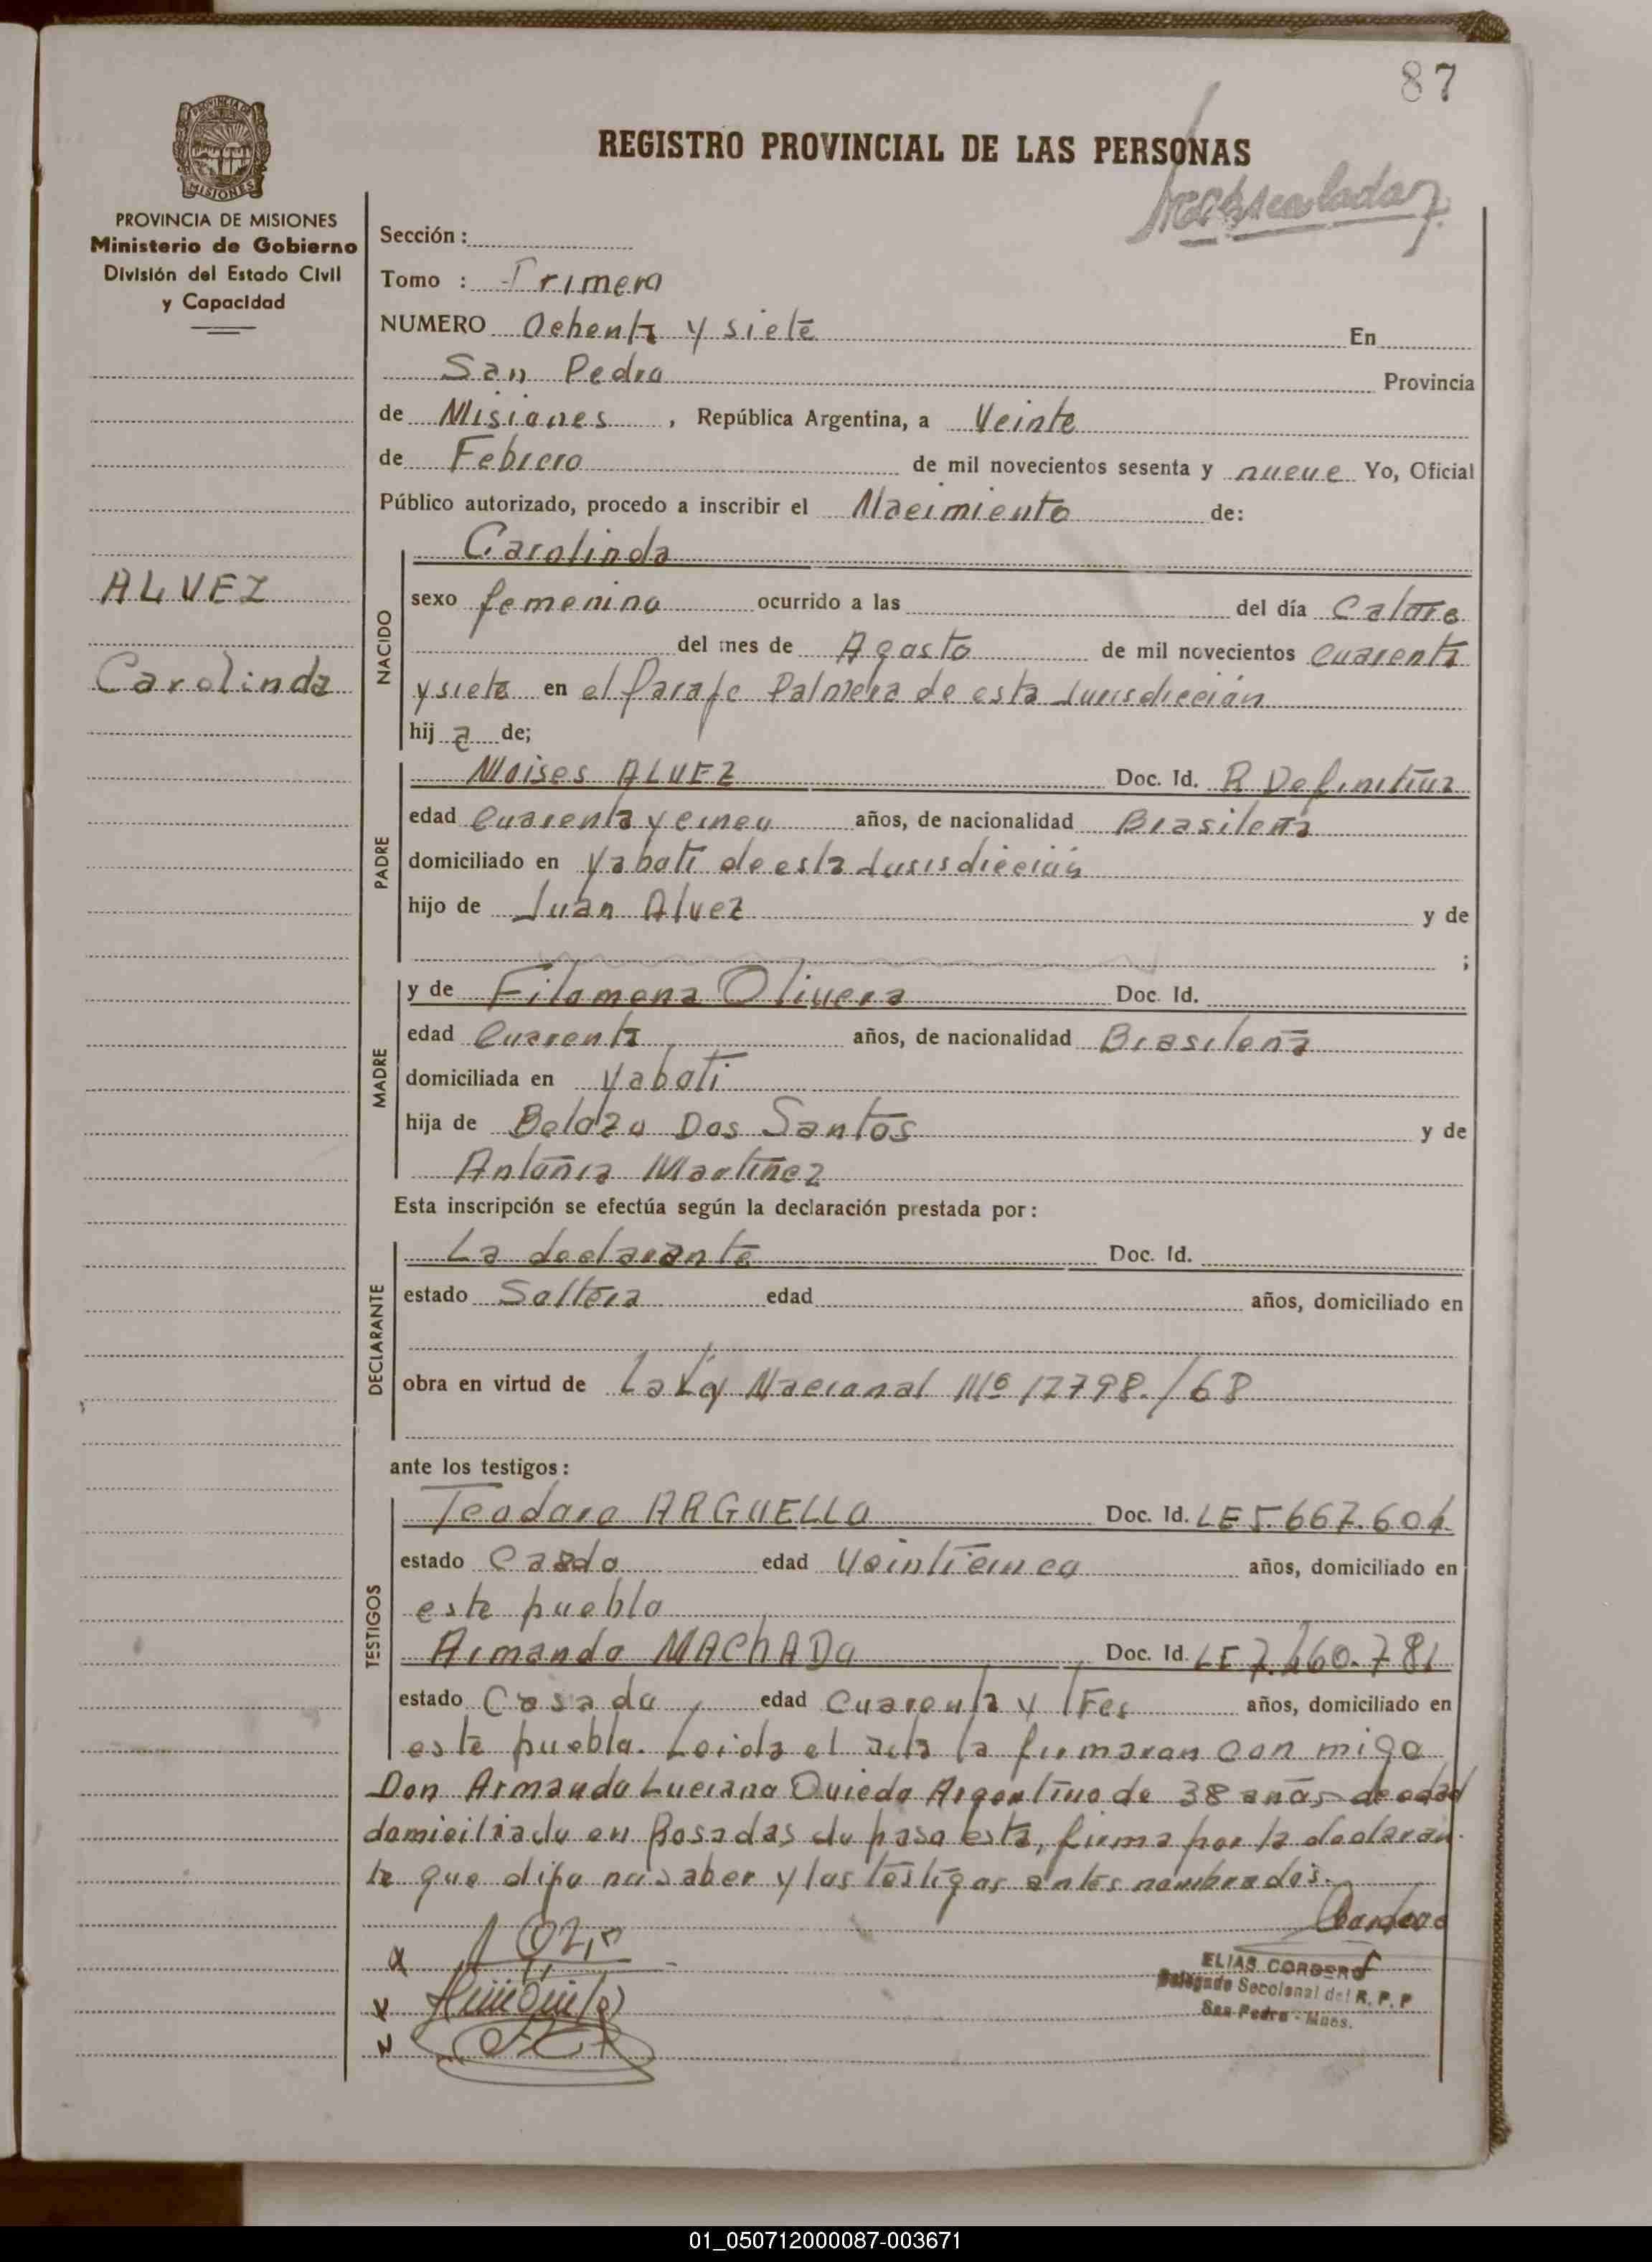 87
PROVINCIA DE
MISIONES
REGISTRO PROVINCIAL DE LAS PERSONAS
PROVINCIA DE MISIONES
Ministerio de Gobierno
División del Estado Civil
y Capacidad
Sección :
Tomo : Primero
NUMERO Ochenta y siete En
San Pedro Provincia
de Misiones , República Argentina, a Veinte
de Febrero de mil novecientos sesenta y nueve Yo, Oficial
Público autorizado, procedo a inscribir el Nacimiento de:
Carolinda
ALVEZ
Carolinda
NACIDO
sexo femenino ocurrido a las del día Catorce
del mes de Agosto de mil novecientos cuarenta
y siete en el Paraje Palmera de esta Jurisdicción
hij a de;
PADRE
Moises ALVEZ Doc. Id. R Definitiva
edad Cuarenta y cinco años, de nacionalidad Brasileña
domiciliado en Yaboti de esta Jurisdicción
hijo de Juan Alvez y de
;
MADRE
y de Filomena Olivera Doc. Id.
edad Cuarenta años, de nacionalidad Brasileña
domiciliada en Yaboti
hija de Dos Santos y de
Antonia Martinez
Esta inscripción se efectúa según la declaración prestada por :
DECLARANTE
La declarante Doc. Id.
estado Soltera edad años, domiciliado en
obra en virtud de La Ley Nacional Nº 17798./68
ante los testigos :
TESTIGOS
Teodoro ARGUELLO Doc. Id. LE 5.667.604
estado Casdo edad Veinticinco años, domiciliado en
este pueblo
Armando MAChADO Doc. Id. LE 7. 60.781
estado Casado edad Cuarenta y Tres años, domiciliado en
este pueblo. Leida el acta la firmaran con migo
Don Armando Luciano Oviedo Argentino de 38 años de edad
domiciliado en Posadas de paso esta, firma por la declaran
te que dijo no saber y los testigos antes nombrados.
ELIAS CORDERO
Delegado Seccional del R. P. P
San Pedro - Mnes.
01_050712000087-003671